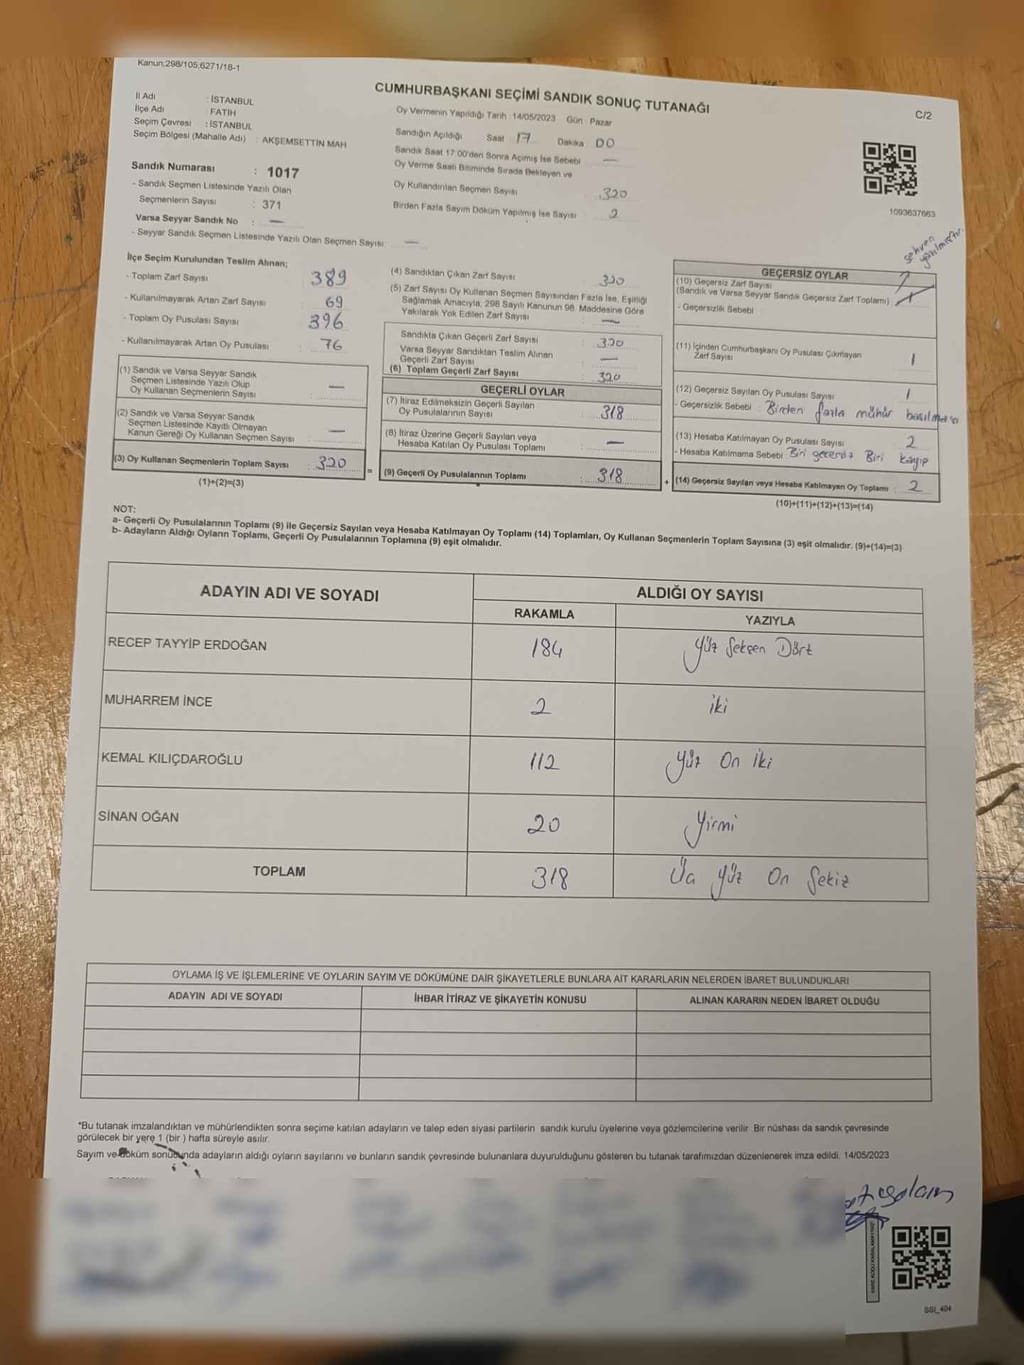 Kanun:298/105;6271/18-1
CUMHURBAŞKANI SEÇİMİ SANDIK SONUÇ TUTANAĞI
C/2
İl Adı : İSTANBUL
İlçe Adı : FATİH
Seçim Çevresi : İSTANBUL
Seçim Bölgesi (Mahalle Adı) : AKŞEMSETTİN MAH
Oy Vermenin Yapıldığı Tarih :14/05/2023 Gün : Pazar
Sandığın Açıldığı Saat 17 Dakika 00
Sandık Saat 17:00'den Sonra Açılmış İse Sebebi —
Oy Verme Saati Bitiminde Sırada Bekleyen ve
Oy Kullandırılan Seçmen Sayısı 320
Birden Fazla Sayım Döküm Yapılmış İse Sayısı 2
1093637663
Sandık Numarası : 1017
- Sandık Seçmen Listesinde Yazılı Olan
Seçmenlerin Sayısı : 371
Varsa Seyyar Sandık No : —
- Seyyar Sandık Seçmen Listesinde Yazılı Olan Seçmen Sayısı: —
İlçe Seçim Kurulundan Teslim Alınan;
- Toplam Zarf Sayısı : 389
- Kullanılmayarak Artan Zarf Sayısı : 69
- Toplam Oy Pusulası Sayısı : 396
- Kullanılmayarak Artan Oy Pusulası : 76
(1) Sandık ve Varsa Seyyar Sandık
Seçmen Listesinde Yazılı Olup
Oy Kullanan Seçmenlerin Sayısı : —
(2) Sandık ve Varsa Seyyar Sandık
Seçmen Listesinde Kayıtlı Olmayan
Kanun Gereği Oy Kullanan Seçmen Sayısı : —
(3) Oy Kullanan Seçmenlerin Toplam Sayısı : 320
(1)+(2)=(3)
=
(4) Sandıktan Çıkan Zarf Sayısı : 320
(5) Zarf Sayısı Oy Kullanan Seçmen Sayısından Fazla İse, Eşitliği
Sağlamak Amacıyla, 298 Sayılı Kanunun 98. Maddesine Göre
Yakılarak Yok Edilen Zarf Sayısı : —
Sandıkta Çıkan Geçerli Zarf Sayısı : 320
Varsa Seyyar Sandıktan Teslim Alınan
Geçerli Zarf Sayısı : —
(6) Toplam Geçerli Zarf Sayısı : 320
GEÇERLİ OYLAR
(7) İtiraz Edilmeksizin Geçerli Sayılan
Oy Pusulalarının Sayısı : 318
(8) İtiraz Üzerine Geçerli Sayılan veya
Hesaba Katılan Oy Pusulası Toplamı : —
(9) Geçerli Oy Pusulalarının Toplamı : 318
+
sehven yazılmıştır.
GEÇERSİZ OYLAR
(10) Geçersiz Zarf Sayısı
(Sandık ve Varsa Seyyar Sandık Geçersiz Zarf Toplamı) :
- Geçersizlik Sebebi :
(11) İçinden Cumhurbaşkanı Oy Pusulası Çıkmayan
Zarf Sayısı : 1
(12) Geçersiz Sayılan Oy Pusulası Sayısı : 1
- Geçersizlik Sebebi : Birden fazla mühür basılması
(13) Hesaba Katılmayan Oy Pusulası Sayısı : 2
- Hesaba Katılmama Sebebi : Biri geçersiz Biri kayıp
(14) Geçersiz Sayılan veya Hesaba Katılmayan Oy Toplamı : 2
(10)+(11)+(12)+(13)=(14)
NOT:
a- Geçerli Oy Pusulalarının Toplamı (9) ile Geçersiz Sayılan veya Hesaba Katılmayan Oy Toplamı (14) Toplamları, Oy Kullanan Seçmenlerin Toplam Sayısına (3) eşit olmalıdır. (9)+(14)=(3)
b- Adayların Aldığı Oyların Toplamı, Geçerli Oy Pusulalarının Toplamına (9) eşit olmalıdır.
ADAYIN ADI VE SOYADI ALDIĞI OY SAYISI
RAKAMLA YAZIYLA
RECEP TAYYİP ERDOĞAN 184 Yüz Seksen Dört
MUHARREM İNCE 2 iki
KEMAL KILIÇDAROĞLU 112 Yüz On iki
SİNAN OĞAN 20 Yirmi
TOPLAM 318 Üç Yüz On Sekiz
OYLAMA İŞ VE İŞLEMLERİNE VE OYLARIN SAYIM VE DÖKÜMÜNE DAİR ŞİKAYETLERLE BUNLARA AİT KARARLARIN NELERDEN İBARET BULUNDUKLARI
ADAYIN ADI VE SOYADI İHBAR İTİRAZ VE ŞİKAYETİN KONUSU ALINAN KARARIN NEDEN İBARET OLDUĞU
*Bu tutanak imzalandıktan ve mühürlendikten sonra seçime katılan adayların ve talep eden siyasi partilerin sandık kurulu üyelerine veya gözlemcilerine verilir. Bir nüshası da sandık çevresinde
görülecek bir yere 1 (bir ) hafta süreyle asılır.
Sayım ve döküm sonucunda adayların aldığı oyların sayılarını ve bunların sandık çevresinde bulunanlara duyurulduğunu gösteren bu tutanak tarafımızdan düzenlenerek imza edildi. 14/05/2023
SSI_404